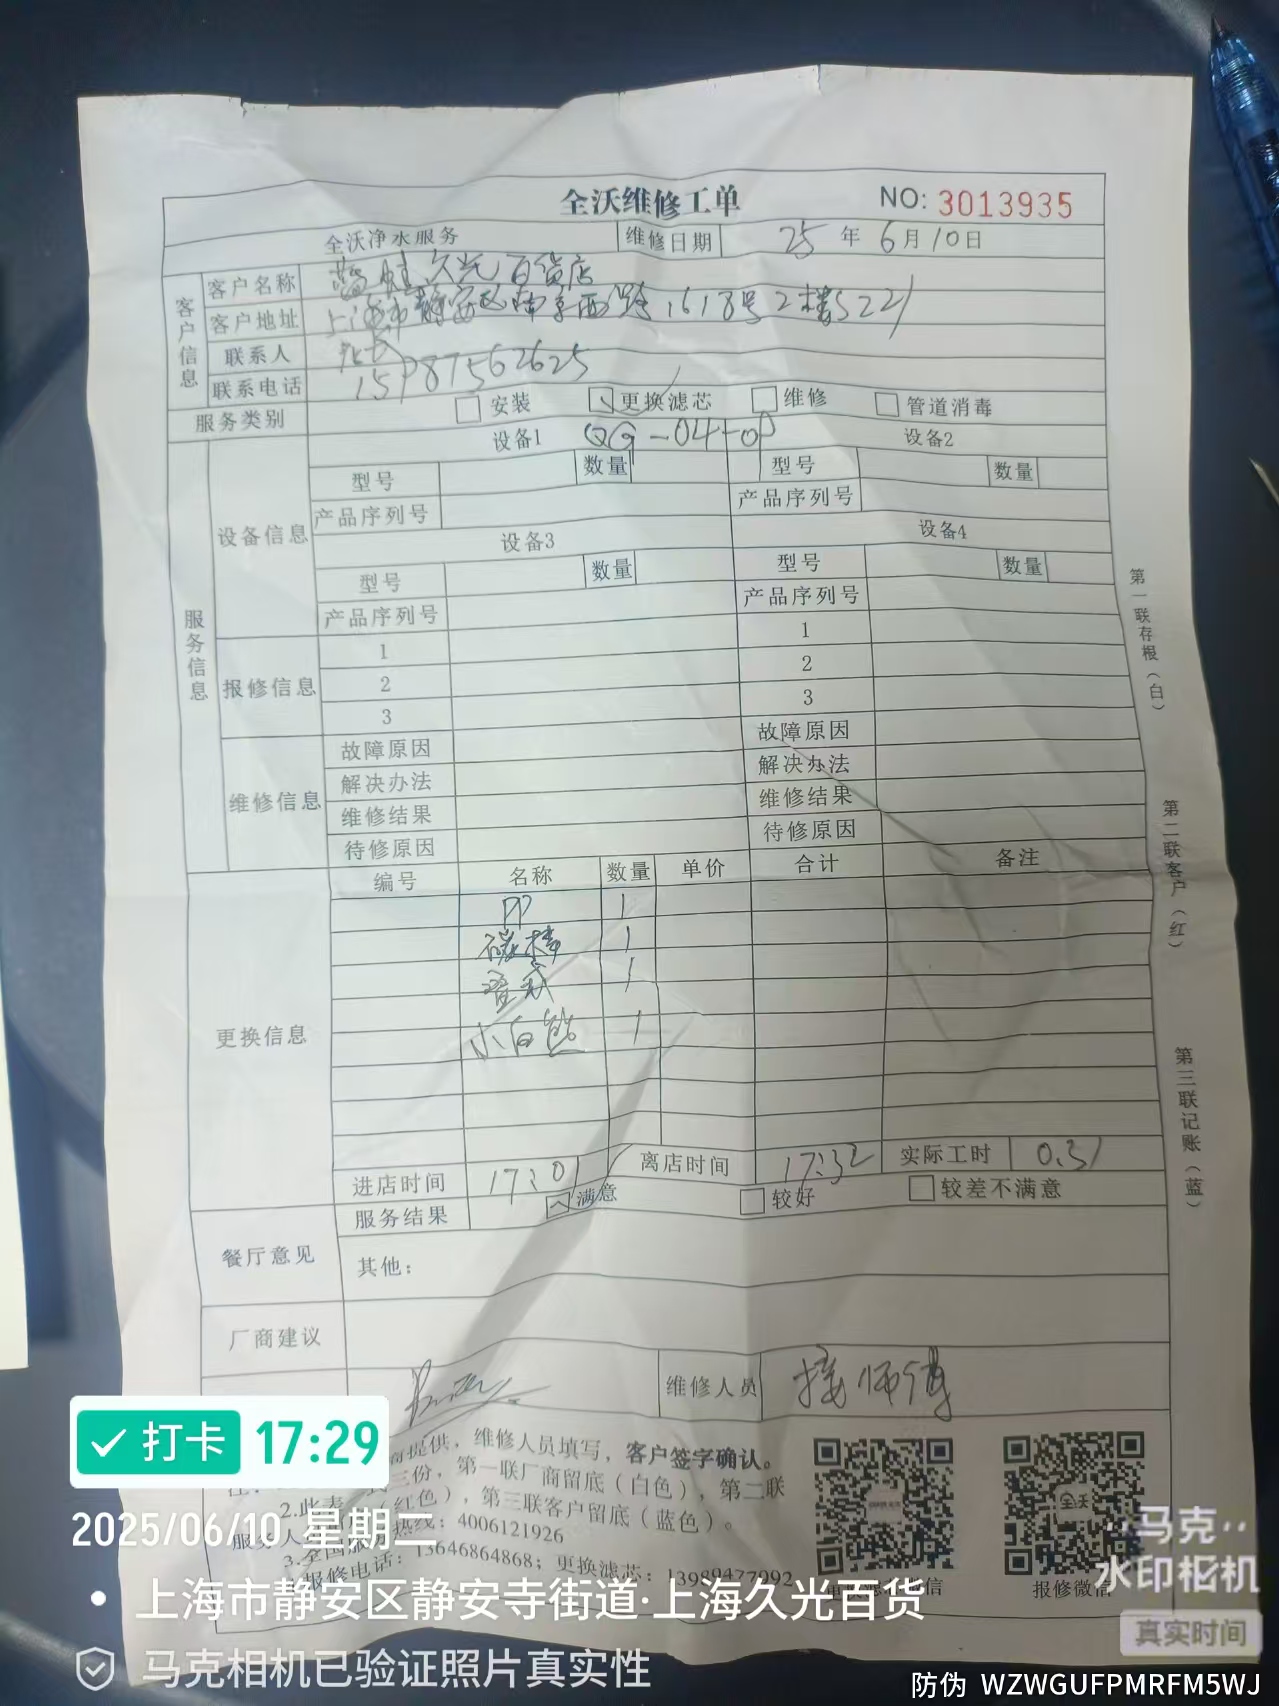 全沃维修工单 NO: 3013935
全沃净水服务 维修日期 25年6月10日
客户信息
客户名称 蓝蛙久光百货店
客户地址 上海市静安区南京西路1618号2楼S221
联系人 店长
联系电话 15987562625
服务类别 安装 更换滤芯 维修 管道消毒
服务信息
设备信息
设备1 QG-04+OP 设备2
型号 数量 型号 数量
产品序列号 产品序列号
设备3 设备4
型号 数量 型号 数量
产品序列号 产品序列号
报修信息
1 1
2 2
3 3
维修信息
故障原因 故障原因
解决办法 解决办法
维修结果 维修结果
待修原因 待修原因
更换信息
编号 名称 数量 单价 合计 备注
PP 1
碳棒 1
1
小白熊 1
进店时间 17:01 离店时间 17:32 实际工时 0.31
餐厅意见
服务结果 满意 较好 较差不满意
其他：
厂商建议
维修人员 师傅
商提供，维修人员填写，客户签字确认。
2.此表 三份，第一联厂商留底（白色），第二联
服务人 （红色），第三联客户留底（蓝色）。
3.全国服 热线：4006121926
报修电话：13646864868；更换滤芯：13989477992
微信 报修微信
全沃
第一联存根（白）
第二联客户（红）
第三联记账（蓝）
打卡 17:29
2025/06/10 星期二
上海市静安区静安寺街道·上海久光百货
马克相机已验证照片真实性
马克
水印相机
真实时间
防伪 WZWGUFPMRFM5WJ